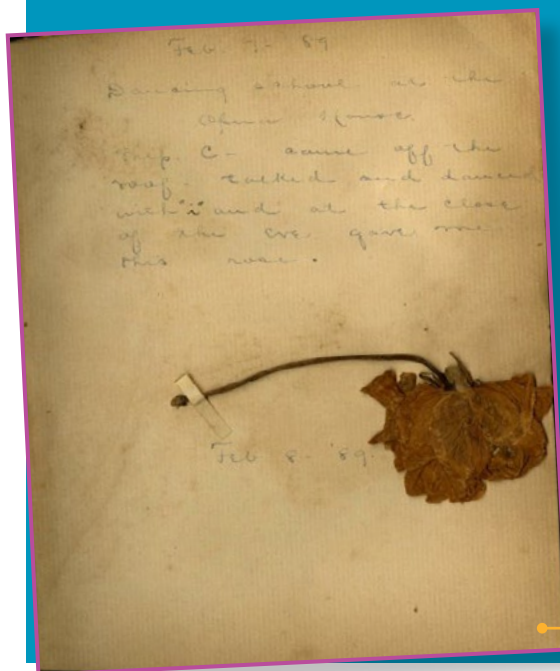 Feb. 7- 89
Dancing school at the
Opera House.
C- came off the
roof. talked and danced
with "i" and at the close
of the eve. gave me
this rose.
Feb 8- '89.